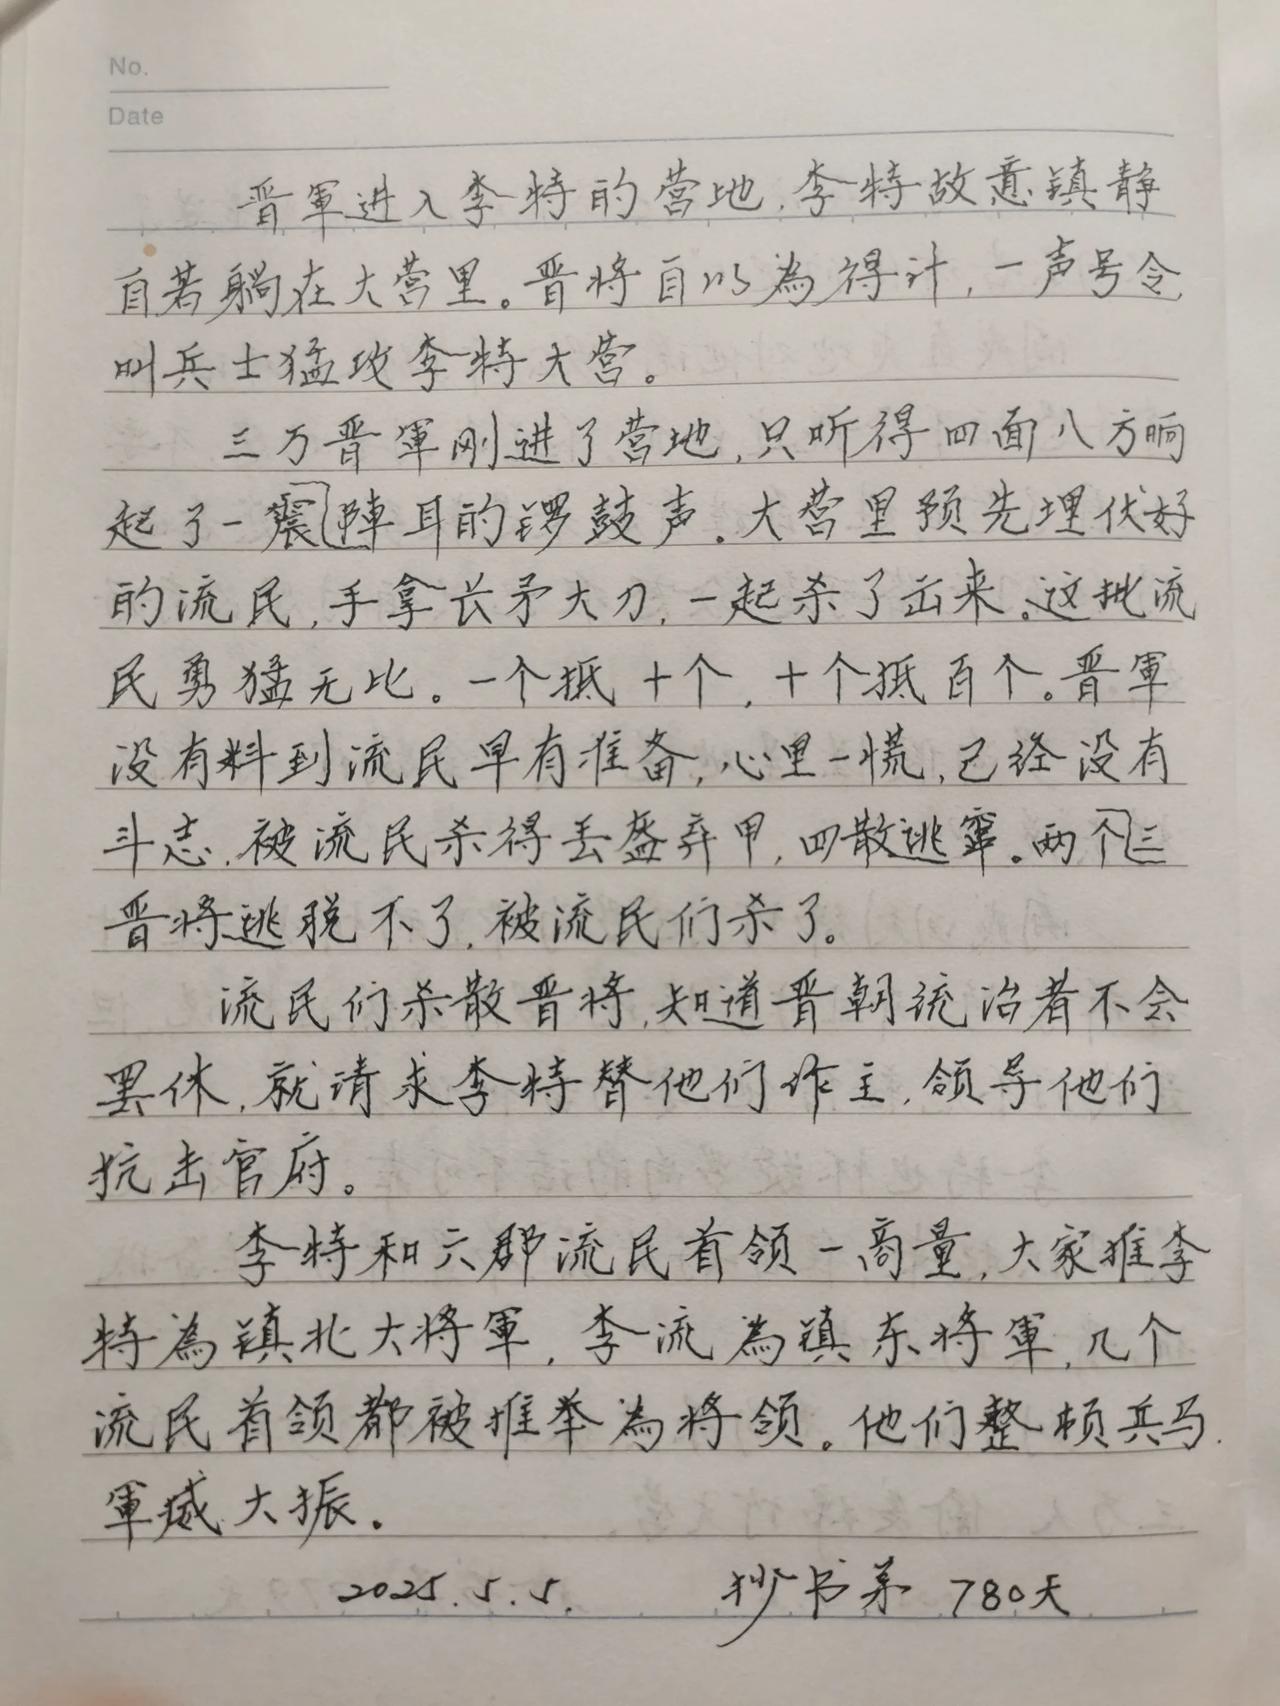 No.
Date
晋軍进入李特的营地,李特故意镇静
自若躺在大营里。晋将自以為得计,一声号令
叫兵士猛攻李特大营。
三万晋軍刚进了营地,只听得四面八方响
起了一震陣耳的锣鼓声。大营里预先埋伏好
的流民,手拿长矛大刀,一起杀了出来。这批流
民勇猛无比。一个抵十个,十个抵百个。晋軍
没有料到流民早有准备,心里一慌,已经没有
斗志,被流民杀得丢盔弃甲,四散逃窜。两个三
晋将逃脱不了,被流民们杀了。
流民们杀散晋将,知道晋朝统治者不会
罢休,就请求李特替他们作主,领导他们
抗击官府。
李特和六郡流民首领一商量,大家推李
特為镇北大将軍,李流為镇东将軍,几个
流民首领都被推举為将领。他们整顿兵马.
軍威大振。
2025.5.5. 抄书第780天